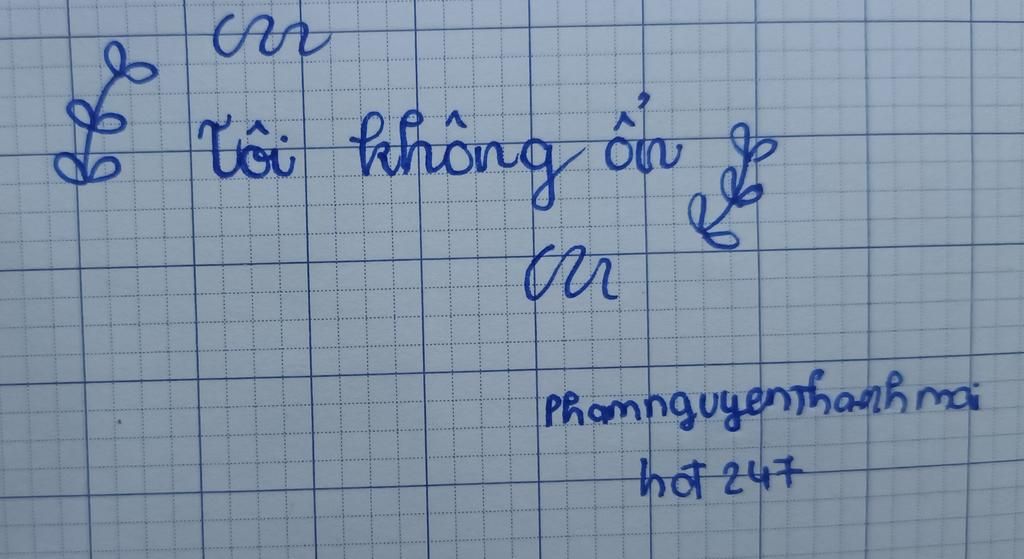 Tôi không ổn
phamnguyenthanhmai
hot 247